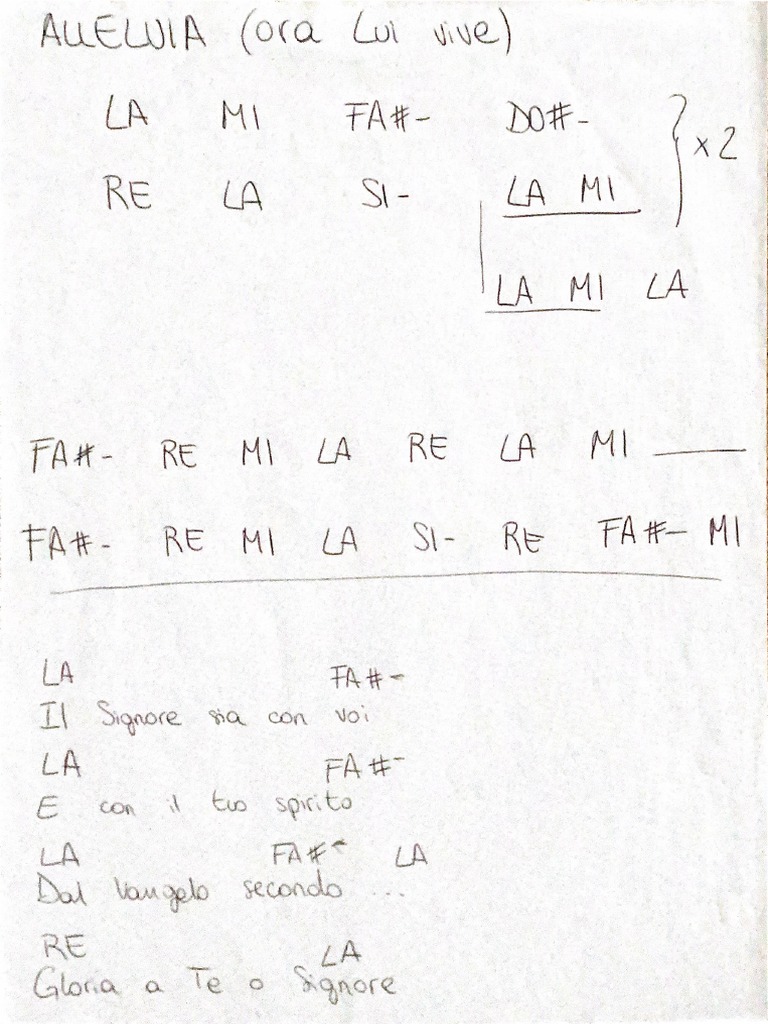 ALLELUIA (ora Lui vive)
LA MI FA#- DO#-
RE LA SI- LA MI } x2
LA MI LA
FA#- RE MI LA RE LA MI
FA#- RE MI LA SI- RE FA#- MI
LA FA#-
Il Signore sia con voi
LA FA#-
E con il tuo spirito
LA FA#- LA
Dal Vangelo secondo ...
RE LA
Gloria a Te o Signore